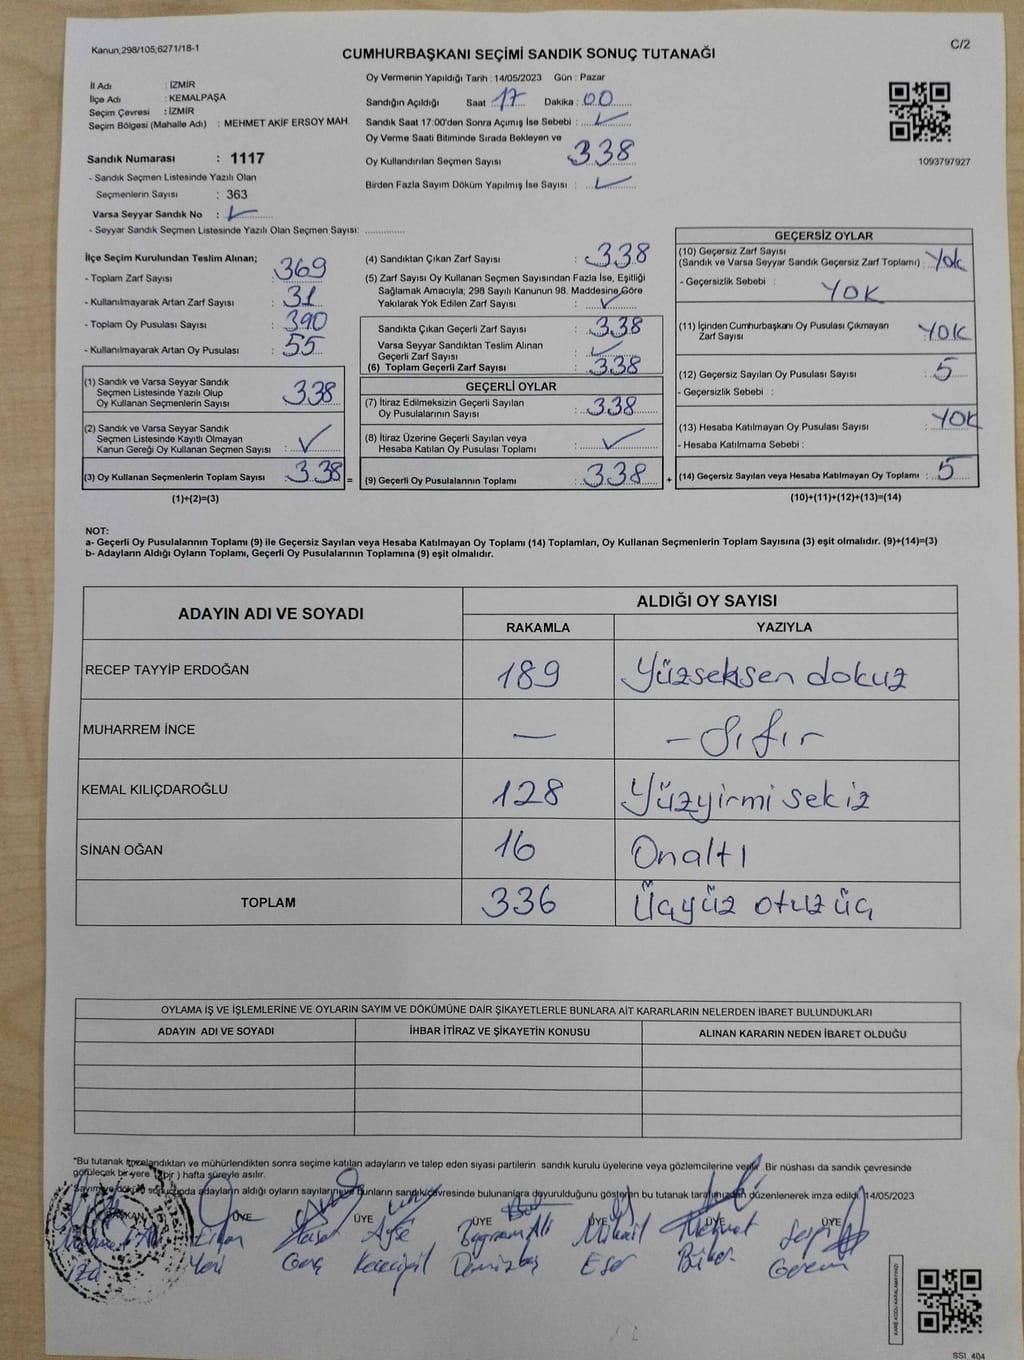 Kanun;298/105;6271/18-1
C/2
CUMHURBAŞKANI SEÇİMİ SANDIK SONUÇ TUTANAĞI
İl Adı : İZMİR
İlçe Adı : KEMALPAŞA
Seçim Çevresi : İZMİR
Seçim Bölgesi (Mahalle Adı) : MEHMET AKİF ERSOY MAH.
Sandık Numarası : 1117
- Sandık Seçmen Listesinde Yazılı Olan
Seçmenlerin Sayısı : 363
Varsa Seyyar Sandık No :
- Seyyar Sandık Seçmen Listesinde Yazılı Olan Seçmen Sayısı: ..............
Oy Vermenin Yapıldığı Tarih : 14/05/2023 Gün : Pazar
Sandığın Açıldığı Saat 17 Dakika : 00
Sandık Saat 17:00'den Sonra Açımış İse Sebebi :
Oy Verme Saati Bitiminde Sırada Bekleyen ve
Oy Kullandırılan Seçmen Sayısı 338
Birden Fazla Sayım Döküm Yapılmış İse Sayısı :
1093797927
İlçe Seçim Kurulundan Teslim Alınan;
- Toplam Zarf Sayısı : 369
- Kullanılmayarak Artan Zarf Sayısı : 31
- Toplam Oy Pusulası Sayısı : 390
- Kullanılmayarak Artan Oy Pusulası : 55
(1) Sandık ve Varsa Seyyar Sandık
Seçmen Listesinde Yazılı Olup
Oy Kullanan Seçmenlerin Sayısı : 338
(2) Sandık ve Varsa Seyyar Sandık
Seçmen Listesinde Kayıtlı Olmayan
Kanun Gereği Oy Kullanan Seçmen Sayısı :
(3) Oy Kullanan Seçmenlerin Toplam Sayısı : 338 =
(1)+(2)=(3)
(4) Sandıktan Çıkan Zarf Sayısı : 338
(5) Zarf Sayısı Oy Kullanan Seçmen Sayısından Fazla İse, Eşitliği
Sağlamak Amacıyla; 298 Sayılı Kanunun 98. Maddesine Göre
Yakılarak Yok Edilen Zarf Sayısı :
Sandıkta Çıkan Geçerli Zarf Sayısı : 338
Varsa Seyyar Sandıktan Teslim Alınan
Geçerli Zarf Sayısı :
(6) Toplam Geçerli Zarf Sayısı : 338
GEÇERLİ OYLAR
(7) İtiraz Edilmeksizin Geçerli Sayılan
Oy Pusulalarının Sayısı : 338
(8) İtiraz Üzerine Geçerli Sayılan veya
Hesaba Katılan Oy Pusulası Toplamı :
(9) Geçerli Oy Pusulalarının Toplamı : 338 +
GEÇERSİZ OYLAR
(10) Geçersiz Zarf Sayısı
(Sandık ve Varsa Seyyar Sandık Geçersiz Zarf Toplamı) : Yok
- Geçersizlik Sebebi : YOK
(11) İçinden Cumhurbaşkanı Oy Pusulası Çıkmayan
Zarf Sayısı : YOK
(12) Geçersiz Sayılan Oy Pusulası Sayısı : 5
- Geçersizlik Sebebi :
(13) Hesaba Katılmayan Oy Pusulası Sayısı : YOK
- Hesaba Katılmama Sebebi :
(14) Geçersiz Sayılan veya Hesaba Katılmayan Oy Toplamı : 5
(10)+(11)+(12)+(13)=(14)
NOT:
a- Geçerli Oy Pusulalarının Toplamı (9) ile Geçersiz Sayılan veya Hesaba Katılmayan Oy Toplamı (14) Toplamları, Oy Kullanan Seçmenlerin Toplam Sayısına (3) eşit olmalıdır. (9)+(14)=(3)
b- Adayların Aldığı Oyların Toplamı, Geçerli Oy Pusulalarının Toplamına (9) eşit olmalıdır.
ADAYIN ADI VE SOYADI
ALDIĞI OY SAYISI
RAKAMLA YAZIYLA
RECEP TAYYİP ERDOĞAN 189 Yüzseksen dokuz
MUHARREM İNCE — - Sıfır
KEMAL KILIÇDAROĞLU 128 Yüzyirmi sekiz
SİNAN OĞAN 16 Onaltı
TOPLAM 336 Üçyüz otuz üç
OYLAMA İŞ VE İŞLEMLERİNE VE OYLARIN SAYIM VE DÖKÜMÜNE DAİR ŞİKAYETLERLE BUNLARA AİT KARARLARIN NELERDEN İBARET BULUNDUKLARI
ADAYIN ADI VE SOYADI İHBAR İTİRAZ VE ŞİKAYETİN KONUSU ALINAN KARARIN NEDEN İBARET OLDUĞU
*Bu tutanak imzalandıktan ve mühürlendikten sonra seçime katılan adayların ve talep eden siyasi partilerin sandık kurulu üyelerine veya gözlemcilerine verilir. Bir nüshası da sandık çevresinde
görülecek bir yere (bir) hafta süreyle asılır.
Sayım ve döküm sonucunda adayların aldığı oyların sayılarının ve bunların sandık çevresinde bulunanlara duyurulduğunu gösteren bu tutanak tarafımızdan düzenlenerek imza edildi. 14/05/2023
BAŞKAN ÜYE ÜYE ÜYE ÜYE ÜYE ÜYE
Hasan Ayşe Bayram Ali Mikail Mehmet
Genç Eser
SSI_404